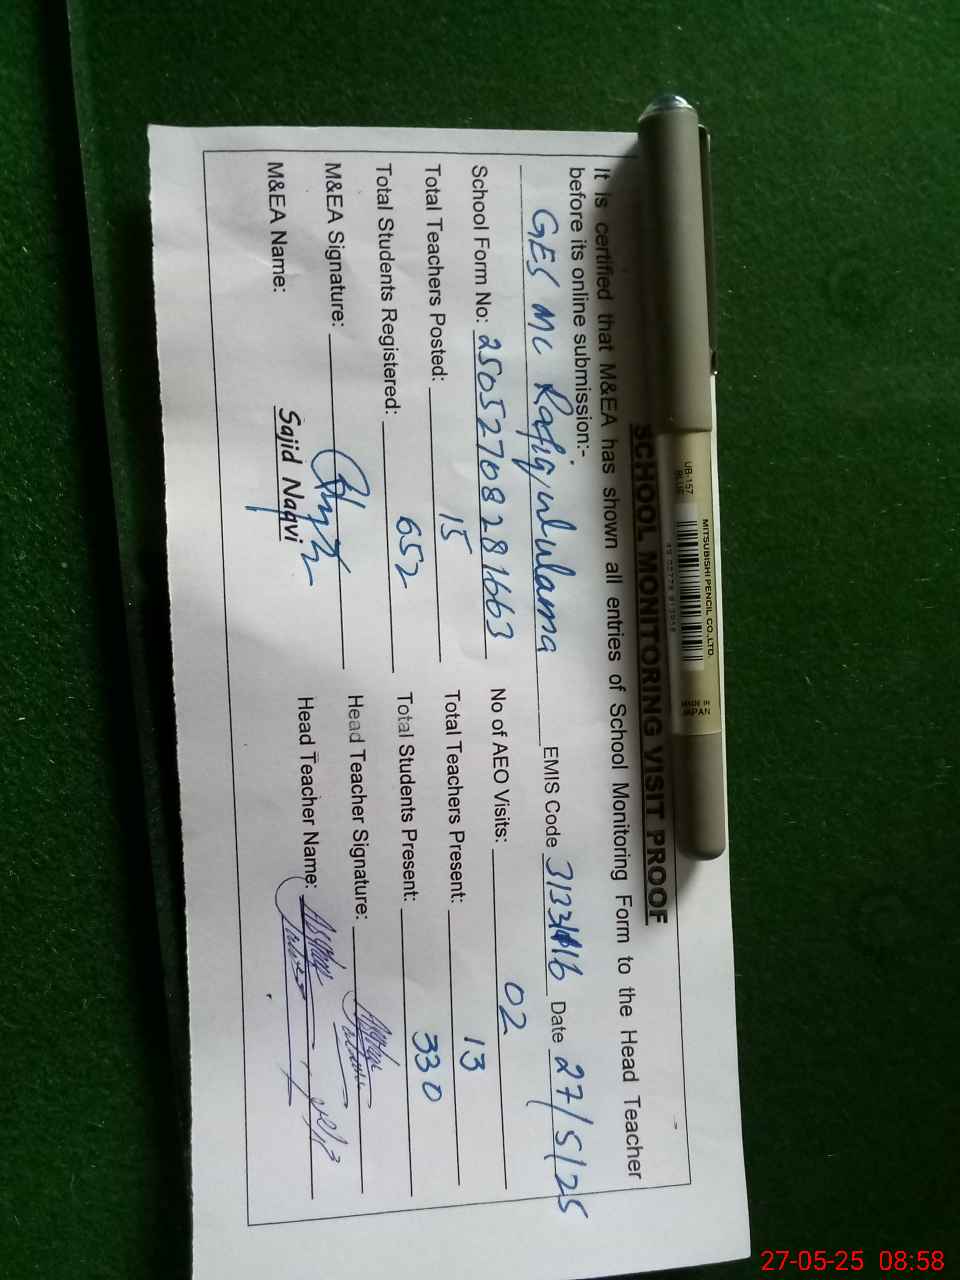 SCHOOL MONITORING VISIT PROOF
It is certified that M&EA has shown all entries of School Monitoring Form to the Head Teacher
before its online submission:-
GES MC Rafiqululama EMIS Code Date 27/5/25
School Form No: 25052708281663 No of AEO Visits: 02
Total Teachers Posted: 15 Total Teachers Present: 13
Total Students Registered: 652 Total Students Present: 330
M&EA Signature: Head Teacher Signature:
M&EA Name: Sajid Naqvi Head Teacher Name:
UB-157
BLUE
MITSUBISHI PENCIL CO.,LTD.
MADE IN
JAPAN
27-05-25 08:58